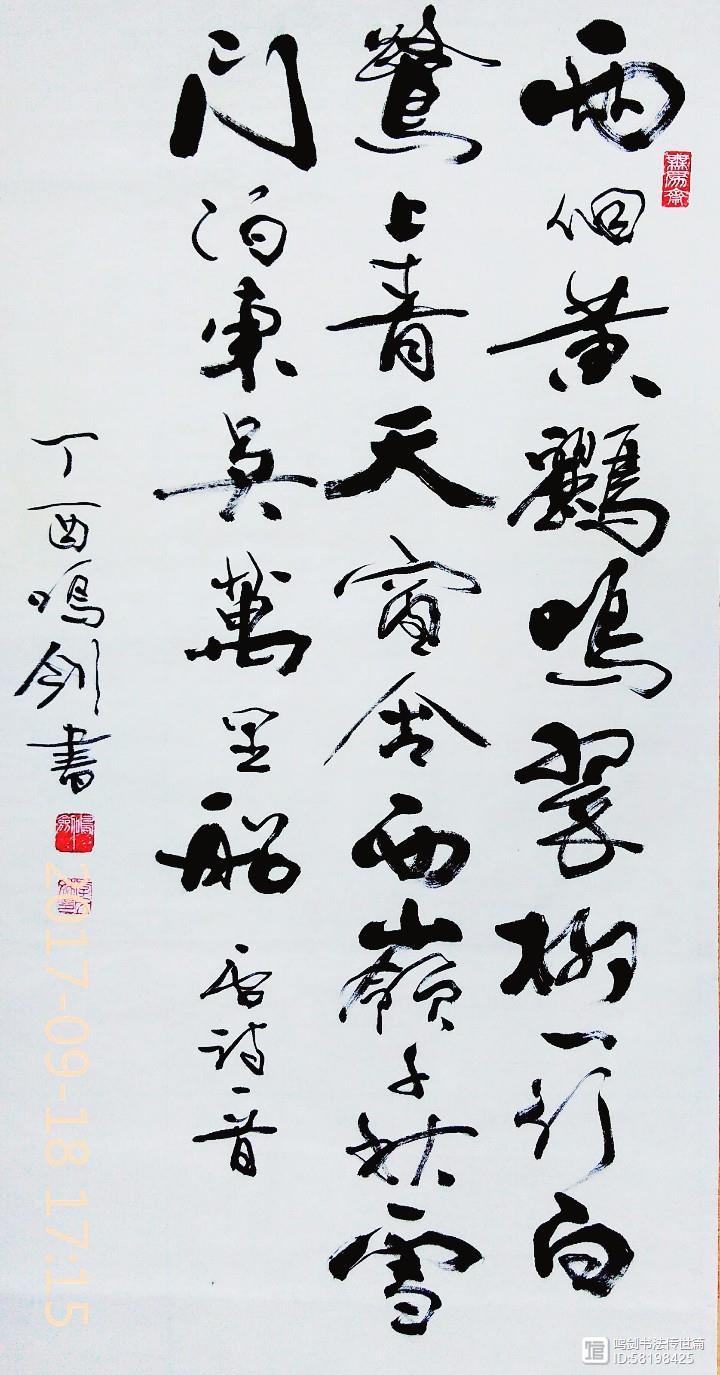 兩個黃鸝鳴翠柳一行白
鷺上青天窗含西嶺千秋雪
門泊東吳萬里船 唐詩一首
丁酉鳴劍書
2017-09-18 17:15
鸣剑书法传世篇
ID:58198425